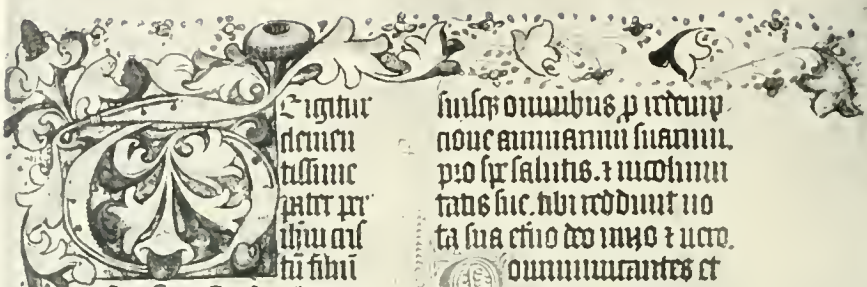 TE igitur
clemen
tissime
pater per
ihm cris
tū filiū
suisq; omnibus, p redemp
cione animarum suarum.
pro spe salutis. ⁊ incolumi
tatis sue. tibi reddunt uo
ta sua et̄no deo uiuo ⁊ uero.
Communicantes et